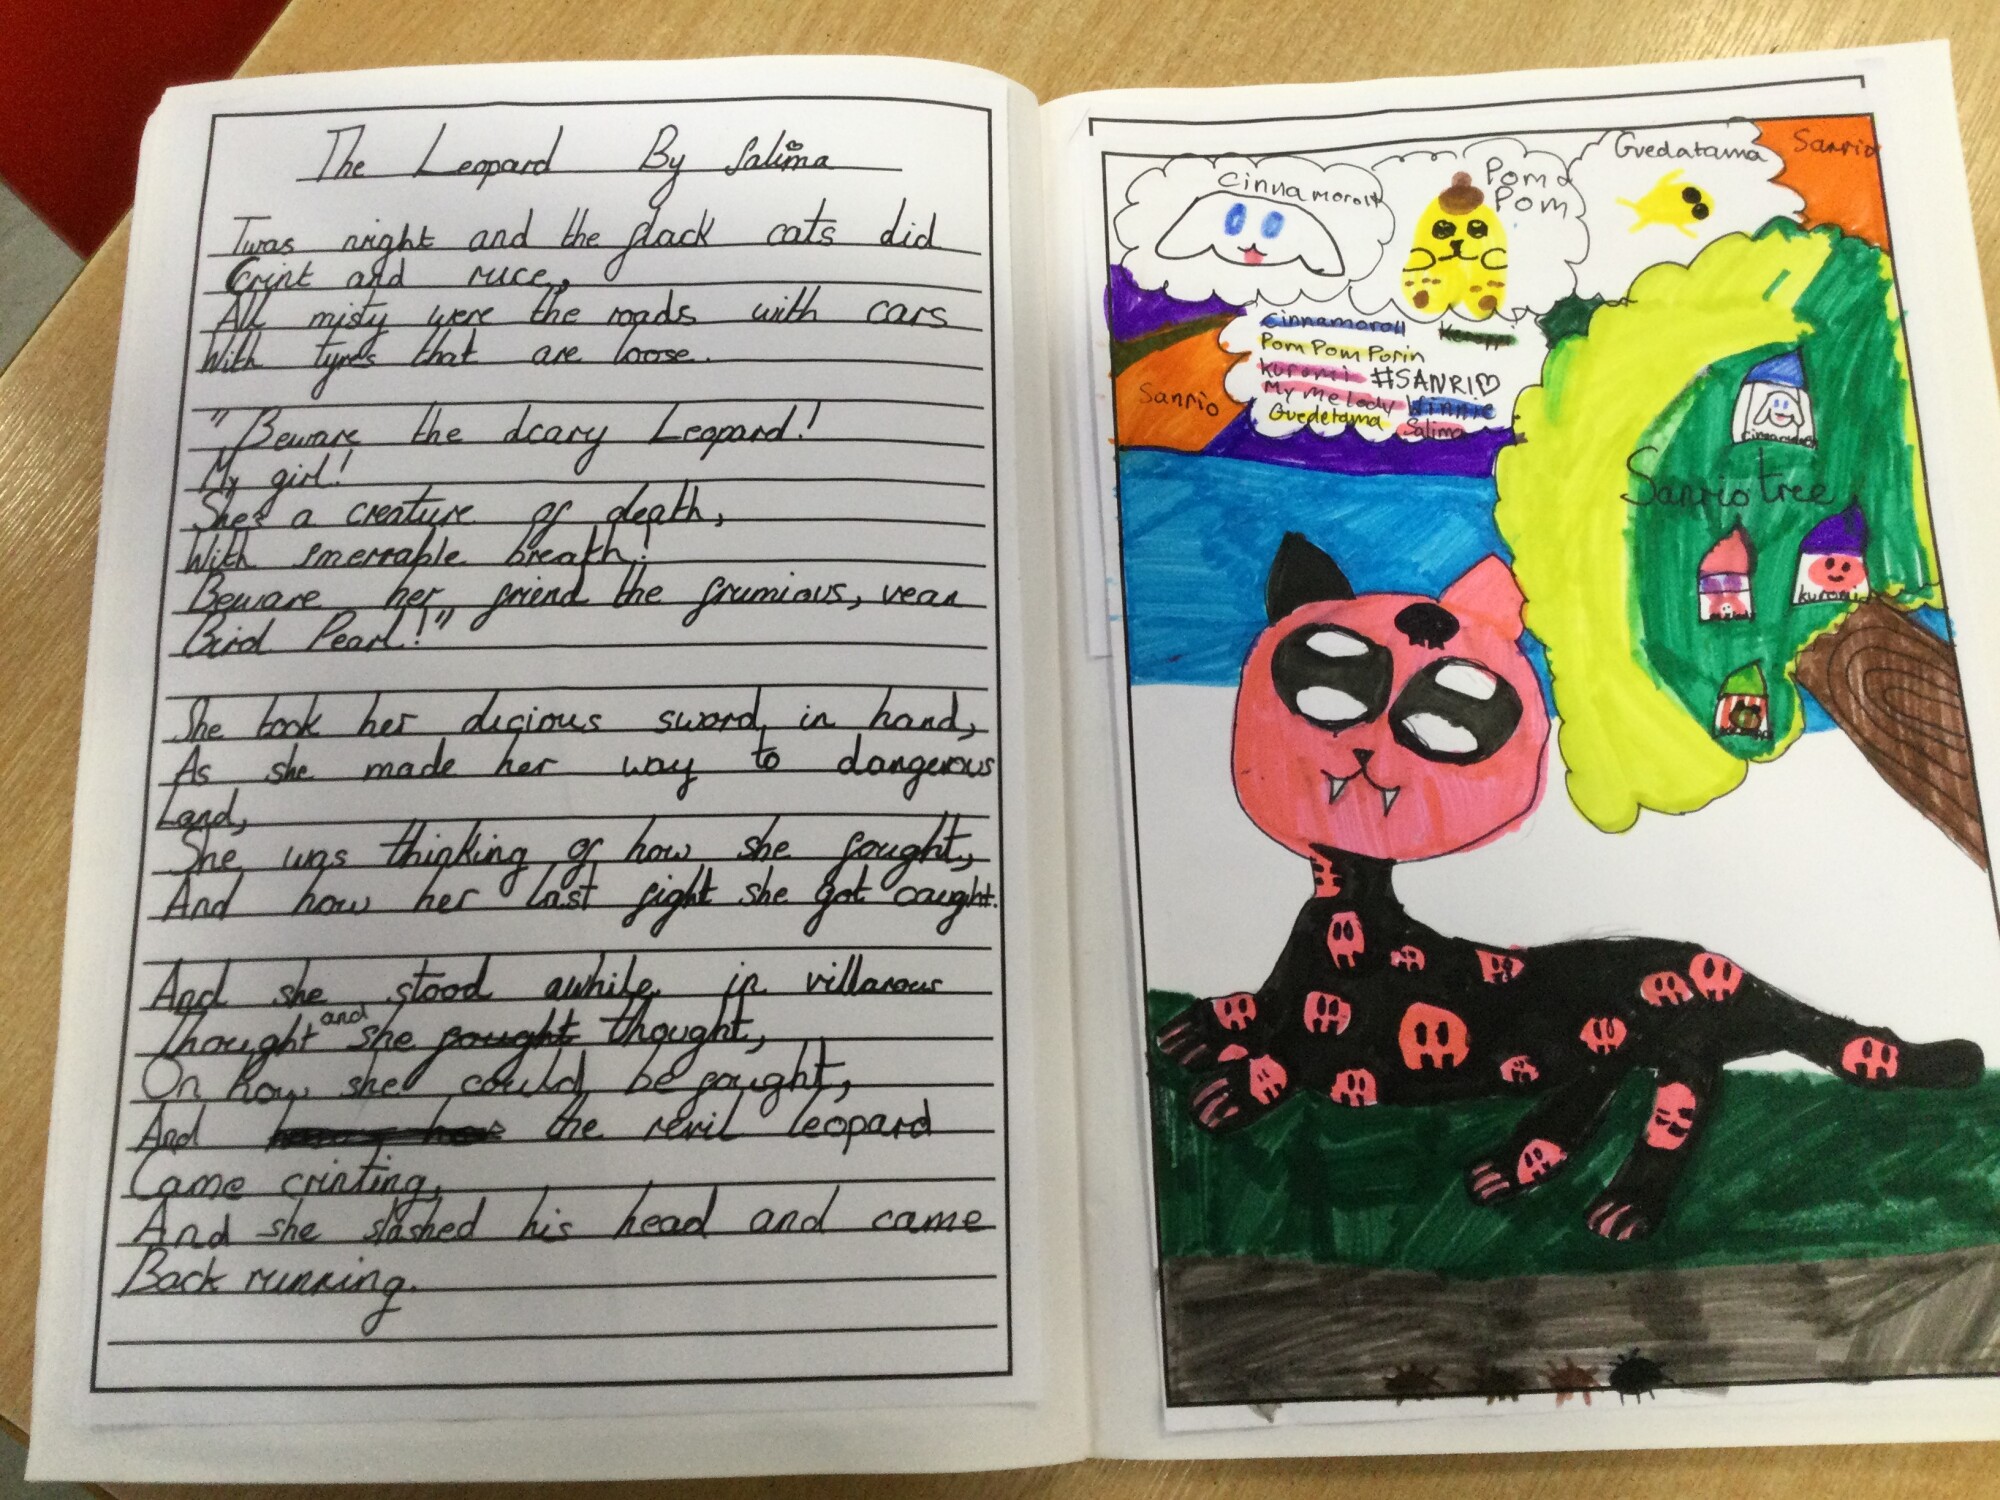 The Leopard By Salima
Twas night and the flack cats did
Crint and ruce,
All misty were the roads with cars
With tyres that are loose.
"Beware the dcary Leopard!
My girl!
She's a creature of death,
With smerrable breath!
Beware her friend the frumious, vean
Bird Pearl!"
She took her dicious sword in hand,
As she made her way to dangerous
Land,
She was thinking of how she fought,
And how her last fight she got caught.
And she stood awhile in villarous
Thought and she fought thought,
On how she could be fought,
And the revil leopard
Came crinting,
And she slashed his head and came
Back running.
Cinnamoroll
Pom
Pom
Gvedatama
Sanrio
Cinnamoroll Keroppi
Pom Pom Porin
kuromi #SANRIO
My Melody Winnie
Gvedetama Salima
Sanrio
Sanrio tree
kuromi